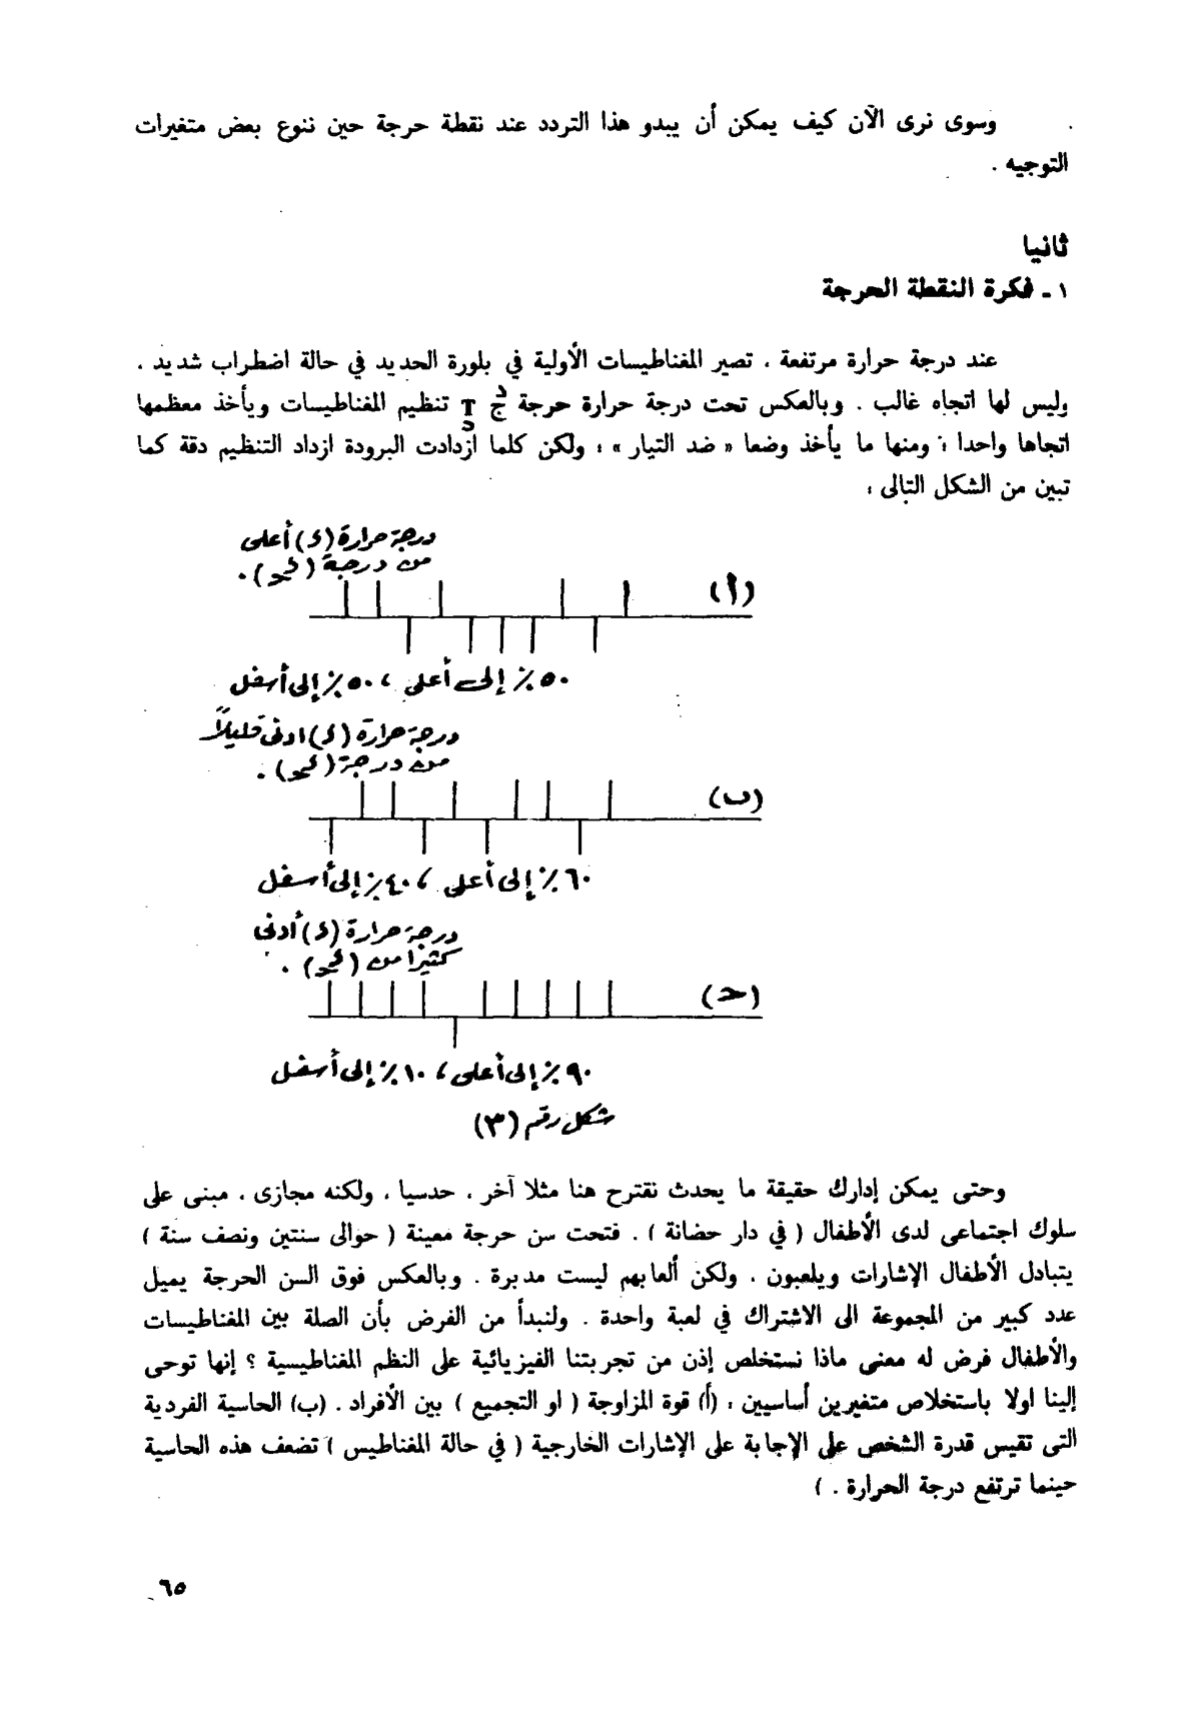 وسوى نرى الآن كيف يمكن أن يبدو هذا التردد عند نقطة حرجة حين ننوع بعض متغيرات
التوجيه .
ثانيا
١ ـ فكرة النقطة الحرجة
عند درجة حرارة مرتفعة ، تصير المغناطيسات الأولية في بلورة الحديد في حالة اضطراب شديد .
وليس لها اتجاه غالب . وبالعكس تحت درجة حرارة حرجة تنظيم المغناطيسات ويأخذ معظمها
اتجاها واحدا ؛ ومنها ما يأخذ وضعا « ضد التيار » ؛ ولكن كلما ازدادت البرودة ازداد التنظيم دقة كما
تبين من الشكل التالى :
درجة حرارة (د) أعلى
من درجة (دحـ) .
(أ)
٥٠٪ إلى أعلى ، ٥٠٪ إلى أسفل
درجة حرارة (د) ادنى قليلاً
من درجة (دحـ) .
(ب)
٦٠٪ إلى أعلى ، ٤٠٪ إلى أسفل
درجة حرارة (د) أدنى
كثيرا من (دحـ) .
(حـ)
٩٠٪ إلى أعلى ، ١٠٪ إلى أسفل
شكل رقم (٣)
وحتى يمكن إدارك حقيقة ما يحدث نقترح هنا مثلا آخر ، حدسيا ، ولكنه مجازى ، مبنى على
سلوك اجتماعى لدى الأطفال ( في دار حضانة ) . فتحت سن حرجة معينة ( حوالى سنتين ونصف سنة )
يتبادل الأطفال الإشارات ويلعبون ، ولكن ألعابهم ليست مدبرة . وبالعكس فوق السن الحرجة يميل
عدد كبير من المجموعة الى الاشتراك في لعبة واحدة . ولنبدأ من الفرض بأن الصلة بين المغناطيسات
والأطفال فرض له معنى ماذا نستخلص إذن من تجربتنا الفيزيائية على النظم المغناطيسية ؟ إنها توحى
إلينا اولا باستخلاص متغيرين أساسيين ، (أ) قوة المزاوجة ( او التجميع ) بين الأفراد . (ب) الحاسية الفردية
التى تقيس قدرة الشخص على الإجابة على الإشارات الخارجية ( في حالة المغناطيس ) تضعف هذه الحاسية
حينما ترتفع درجة الحرارة . )
٦٥